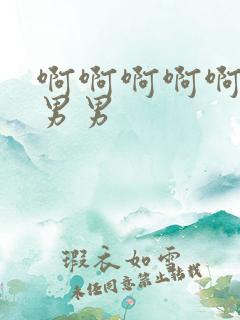 啊啊啊啊啊
男男
瑕衣如雪
未经同意禁止转载